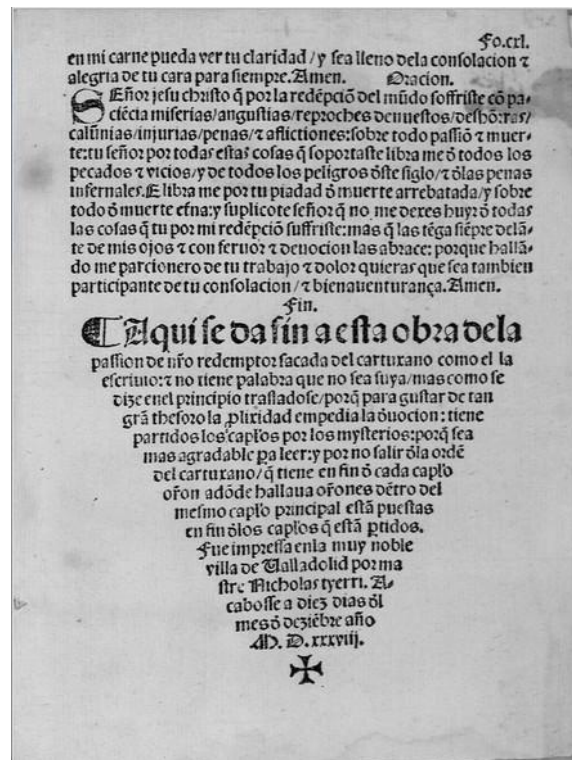 Fo.cxl.
en mi carne pueda ver tu claridad/y sea lleno dela consolacion ⁊
alegria de tu cara para siempre.Amen. Oracion.
SEñor jesu christo q̃ por la redẽpciõ del mũdo soffriste cõ pa-
ciẽcia miserias/angustias/reproches denuestos/deshõrras/
calũnias/injurias/penas/⁊ aflictiones:sobre todo passiõ ⁊ muer-
te:tu señor por todas estas cosas q̃ soportaste libra me õ todos los
pecados ⁊ vicios/y de todos los peligros õste siglo/⁊ õlas penas
infernales.E libra me por tu piadad õ muerte arrebatada/y sobre
todo õ muerte etña:y suplicote señor q̃ no me dexes huyr õ todas
las cosas q̃ tu por mi redẽpciõ suffriste:mas q̃ las tẽga siẽpre delã-
te de mis ojos ⁊ con feruor ⁊ deuocion las abrace: porque hallã-
do me parcionero de tu trabajo ⁊ dolor quieras que sea tambien
participante de tu consolacion/⁊ bienauenturança.Amen.
Fin.
¶Aqui se da fin a esta obra dela
passion de nr̃o redemptor sacada del cartuxano como el la
escriuio:⁊ no tiene palabra que no sea suya/mas como se
dize enel principio trasladose/porq̃ para gustar de tan
grã thesoro la ꝓlixidad empedia la õuocion: tiene
partidos los capl̃os por los mysterios:porq̃ sea
mas agradable ꝑa leer:y por no salir õla ordẽ
del cartuxano/q̃ tiene en fin õ cada capl̃o
or̃on adõde hallaua or̃ones dẽtro del
mesmo capl̃o principal estã puestas
en fin õlos capl̃os q̃ estã ꝑtidos.
Fue impressa enla muy noble
villa de Ualladolid por ma
stre Nicholas tyerri. A-
cabosse a diez dias õl
mes õ deziẽbre año
M. D. xxxviij.